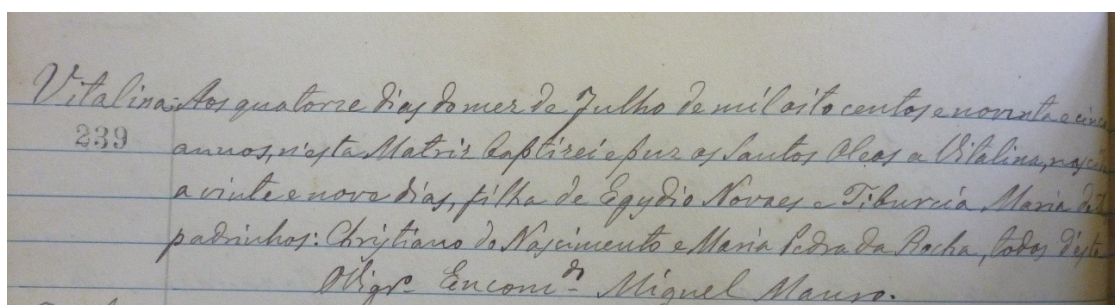 Vitalina Aos quatorze dias do mez de Julho de mil oito centos e noventa e cinco
239 annos, n'esta Matriz baptizei e puz os Santos Oleos a Vitalina, nascida
a vinte e nove dias, filha de Egydio Novaes e Tiburcia Maria de
padrinhos: Christiano do Nascimento e Maria Pedra da Rocha, todos d'esta
O Vigr.º Encom.do Miguel Mauro.